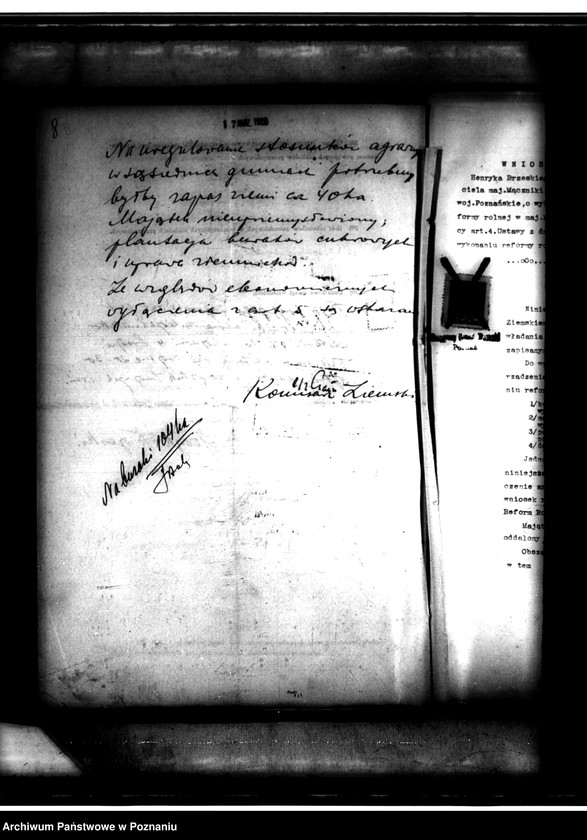 8
Na uregulowanie stosunków agrarn
w sąsiednich gminach potrzebny
byłby zapas ziemi ca 40 ha.
Majątek nieuprzemysłowiony;
plantacja buraków cukrowych
i uprawa ziemniaków.
Ze względów ekonomicznych
wyłączenia z art. 5
Komisarz Ziemski
Na buraki 104 ha
W N I O S
Henryka Brzeskie
ciela maj.Mączniki
woj.Poznańskie,o wy
formy rolnej w maj.
cy art.4.Ustawy z d
wykonaniu reformy ro
...oOo...
Ninie
Ziemskie
władania
zapisany
Do w
rządzenia
niu refor
1/
2/
3/
4/
Jedno
niniejsz
czenie
wniosek
Reform Ro
Mająt
oddalony
Obsza
w tem
Archiwum Państwowe w Poznaniu